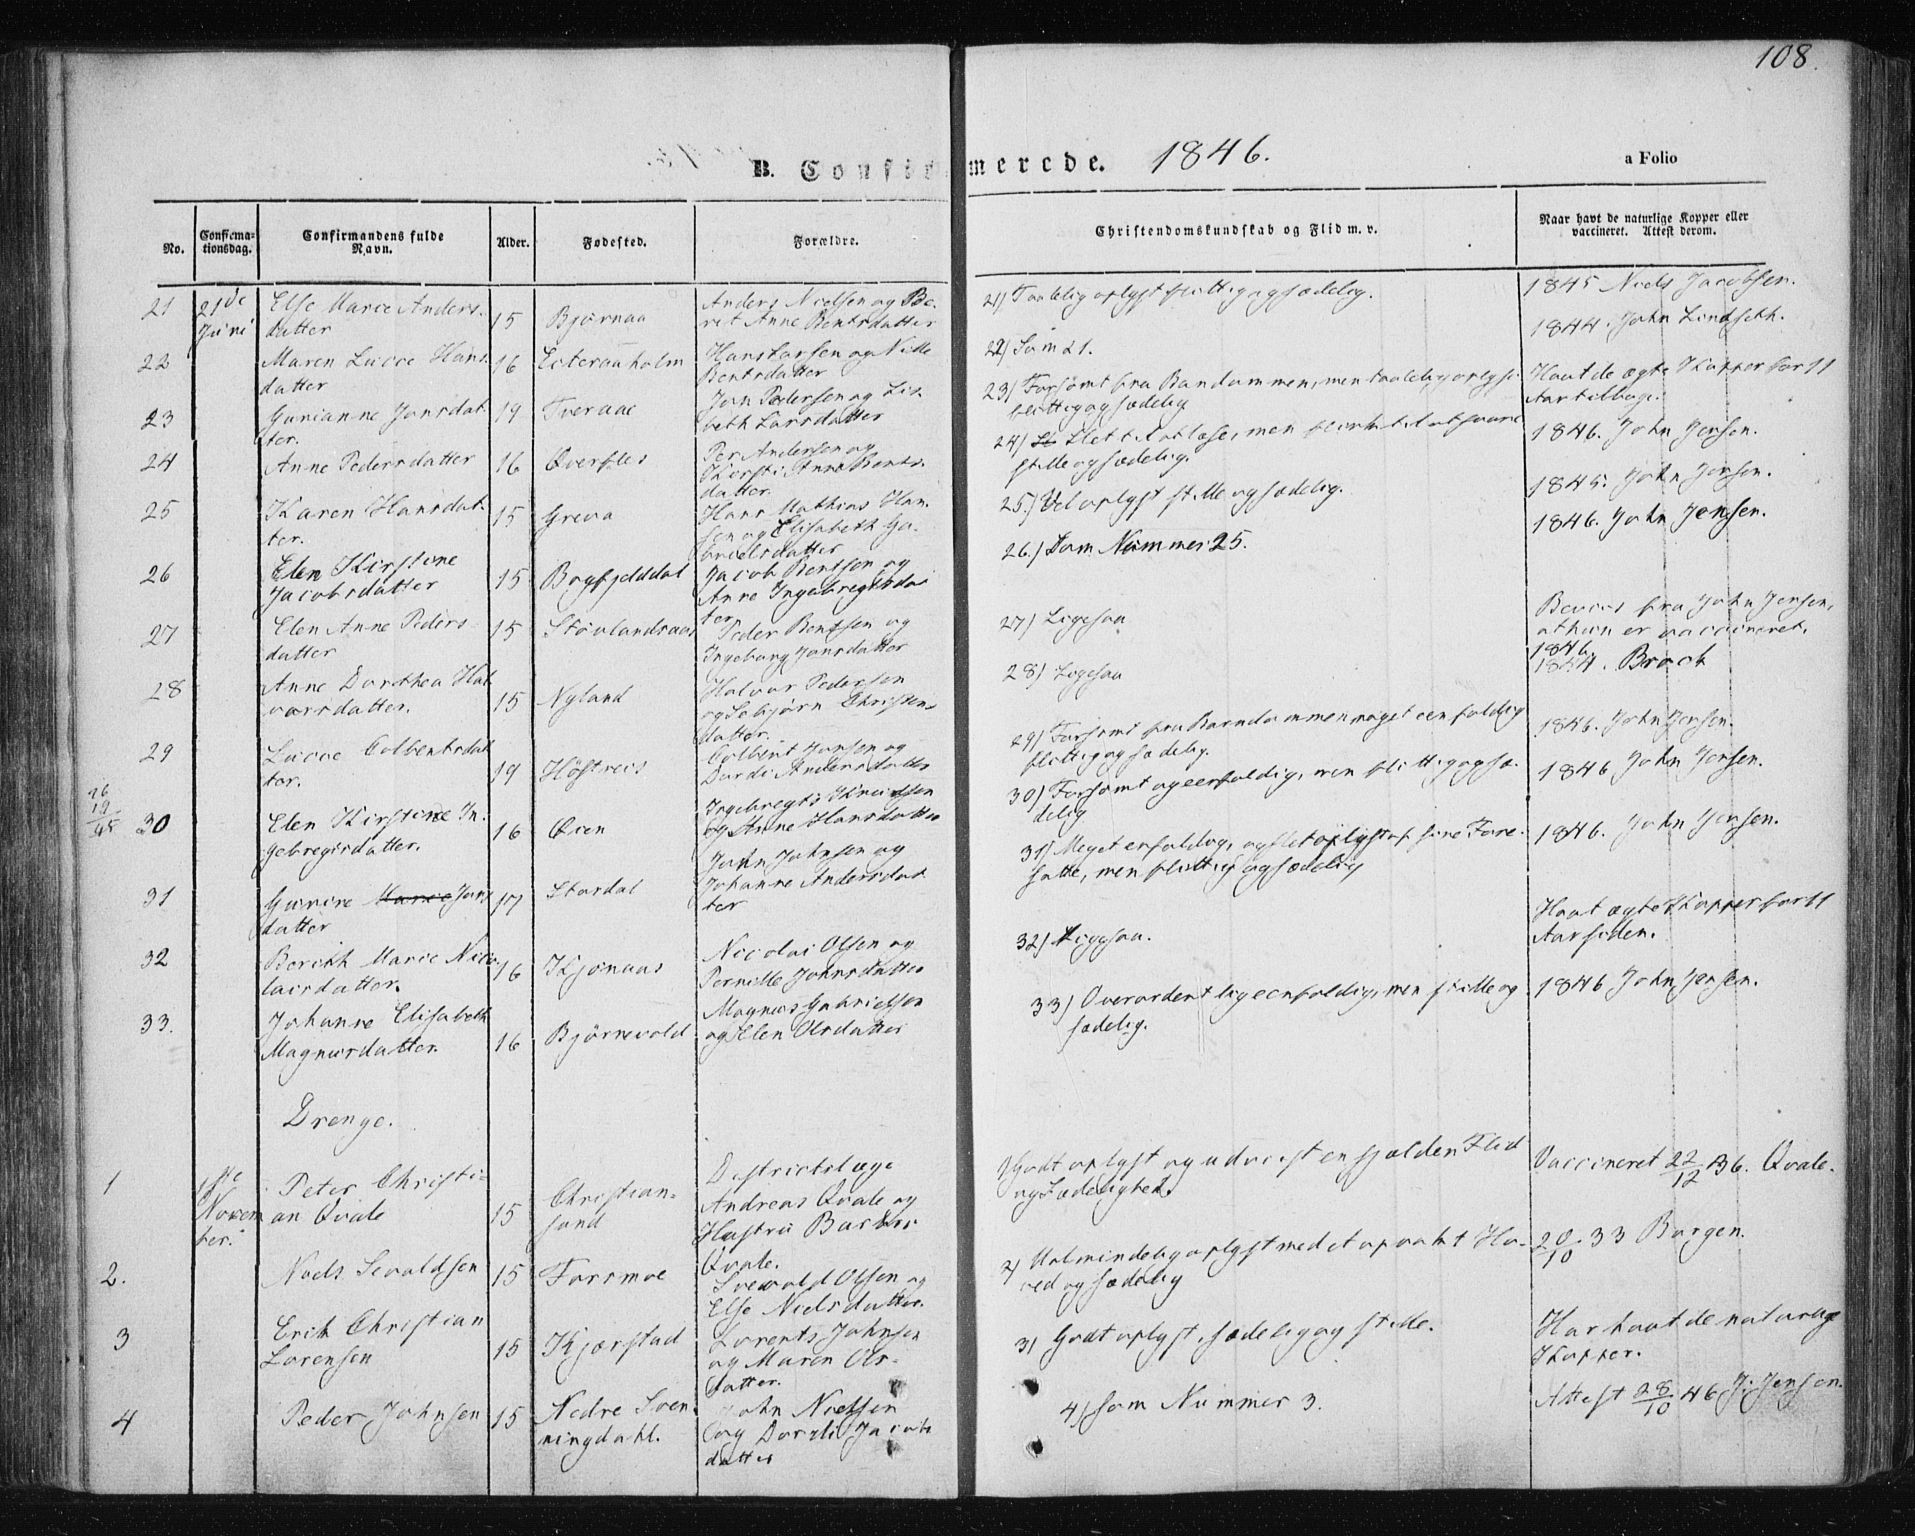 108.
B. Confirmerede. 1846.
a Folio
No.
Confirma-
tionsdag.
Confirmandens fulde
Navn.
Alder.
Fødested.
Forældre.
Christendomskundskab og Flid m. v.
Naar havt de naturlige Kopper eller
vaccineret. Attest derom.
21 21de Juni
Else Marie Anders-
datter
15
Bjørnaa
Anders Nielsen og Be-
ret Anne Bentsdatter
21) Taalelig oplyst flittig og sædelig.
1845 Niels Jacobsen.
22
Maren Lucie Hans-
datter
16
Hans Larsen og Nille
Bentsdatter
22) Som 21.
1844. John Lindseth.
23
Gurianne Jonsdat-
ter.
19
Tveraae
Jon Pedersen og Lis-
beth Larsdatter
23) Forsömt fra Barndommen, men taalelig oplyst
flittig og sædelig
Havt de ægte Kopper for 11
Aar tilbage.
24
Anne Pedersdatter
16
Øverfles
Per Andersen og
Kirsti Anna Bents-
datter
24) Slet til at læse, men flink til at svare
stille og sædelig.
1846. John Jensen.
25
Karen Hansdat-
ter.
15
Greva
Hans Mathias Han-
sen og Elisabeth Ga-
brielsdatter
25.) Vel oplyst stille og sædelig.
1845. John Jensen.
26
Elen Kirstine
Jacobsdatter
15
Bogfjelddal
Jacob Bentsen og
Anne Ingebregtsdat-
ter
26.) Som Nummer 25.
1846. John Jensen.
27
Elen Anne Peders-
datter
15
Peder Bentsen og
Ingeborg Jonsdatter
27) Ligesaa
Beviis fra John Jensen,
at hun er vaccineret.
1846.
28
Anne Dorthea Hal-
vorsdatter.
15
Nyland
Halvor Pedersen
og Sebjørn Christens-
datter.
28) Ligesaa
Brock
29
Lucie Colbentsdat-
ter.
19
Höstreis
Colbent Jonsen og
Dordi Andersdatter
29) Forsömt fra Barndommen noget eenfoldig
flittig og sædelig.
1846. John Jensen.
30
Elen Kirstine In-
gebregtsdatter.
16
Øien
Ingebregt Knudsen
og Anne Hansdatter
30) Forsömt og eenfoldig, men flittig og sæ-
delig
1846 John Jensen.
31
Gurine Marie Jons-
datter
17
Stordal
John Johnsen og
Johanne Andersdat-
ter
31) Meget enfoldig, og slet oplyst af sine Fore-
satte, men flittig og sædelig
1846. John Jensen.
32
Berith Marie Nico-
laisdatter.
16
Kjønaas
Nicolai Olsen og
Pernille Johnsdatter
32) Ligesaa.
Havt ægte Kopper for 11
Aar siden.
33.
Johanne Elisabeth
Magnusdatter.
16
Bjørnevold
Magnus Gabrielsen
og Elen Olsdatter
33) Overordentlig eenfoldig, men stille og
sædelig.
1846 John Jensen.
Drenge.
1
1ste
Novem-
ber.
Peter Christi-
an Qvale
15
Christian-
sund
Districtslæge
Andreas Qvale og
Hustru Barbra
Qvale.
1) Godt oplyst og udviist en sjælden Flid
og Sædelighed.
Vaccineret 22/12 36. Qvale.
2.
Niels Sivaldsen
15
Forsmoe
Sivald Olsen og
Else Nielsdatter.
2) Ualmindelig oplyst med et opvakt Ho-
ved og sædelig
20/10 33 Borgen.
3
Erik Christian
Lorensen
15
Kjærstad
Lorents Johnsen
og Maren Ols-
datter.
3) Godt oplyst, sædelig og stille.
Har havt de naturlige
Kopper.
4
Peder Johnsen
15
Nedre Sven-
ningdahl.
John Nielsen
og Dorthe Jacobs
datter
4) Som Nummer 3.
Attest 28/10 46 J. Jensen.